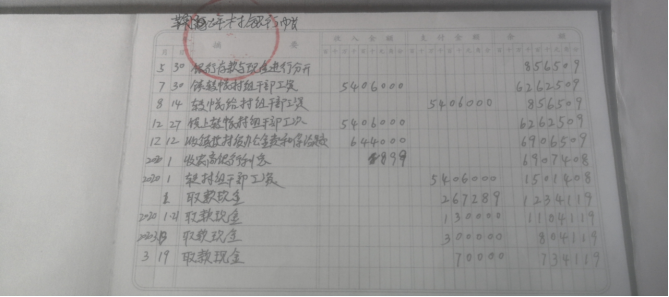 村银行帐
摘 要 收入金额 支付金额 余额
5 30 银行存款与现金进行分开 856509
7 30 镇转帐村组干部工资 5406000 6262509
8 14 转帐给村组干部工资 5406000 856509
12 27 镇上转帐村组干部工资 5406000 6262509
12 12 644000 6906509
1 899 6907408
2020 1 转村组干部工资 5406000 1501408
1 取款现金 267289 1234119
2020 1.21 取款现金 130000 1104119
取款现金 300000 804119
3 19 取款现金 70000 734119